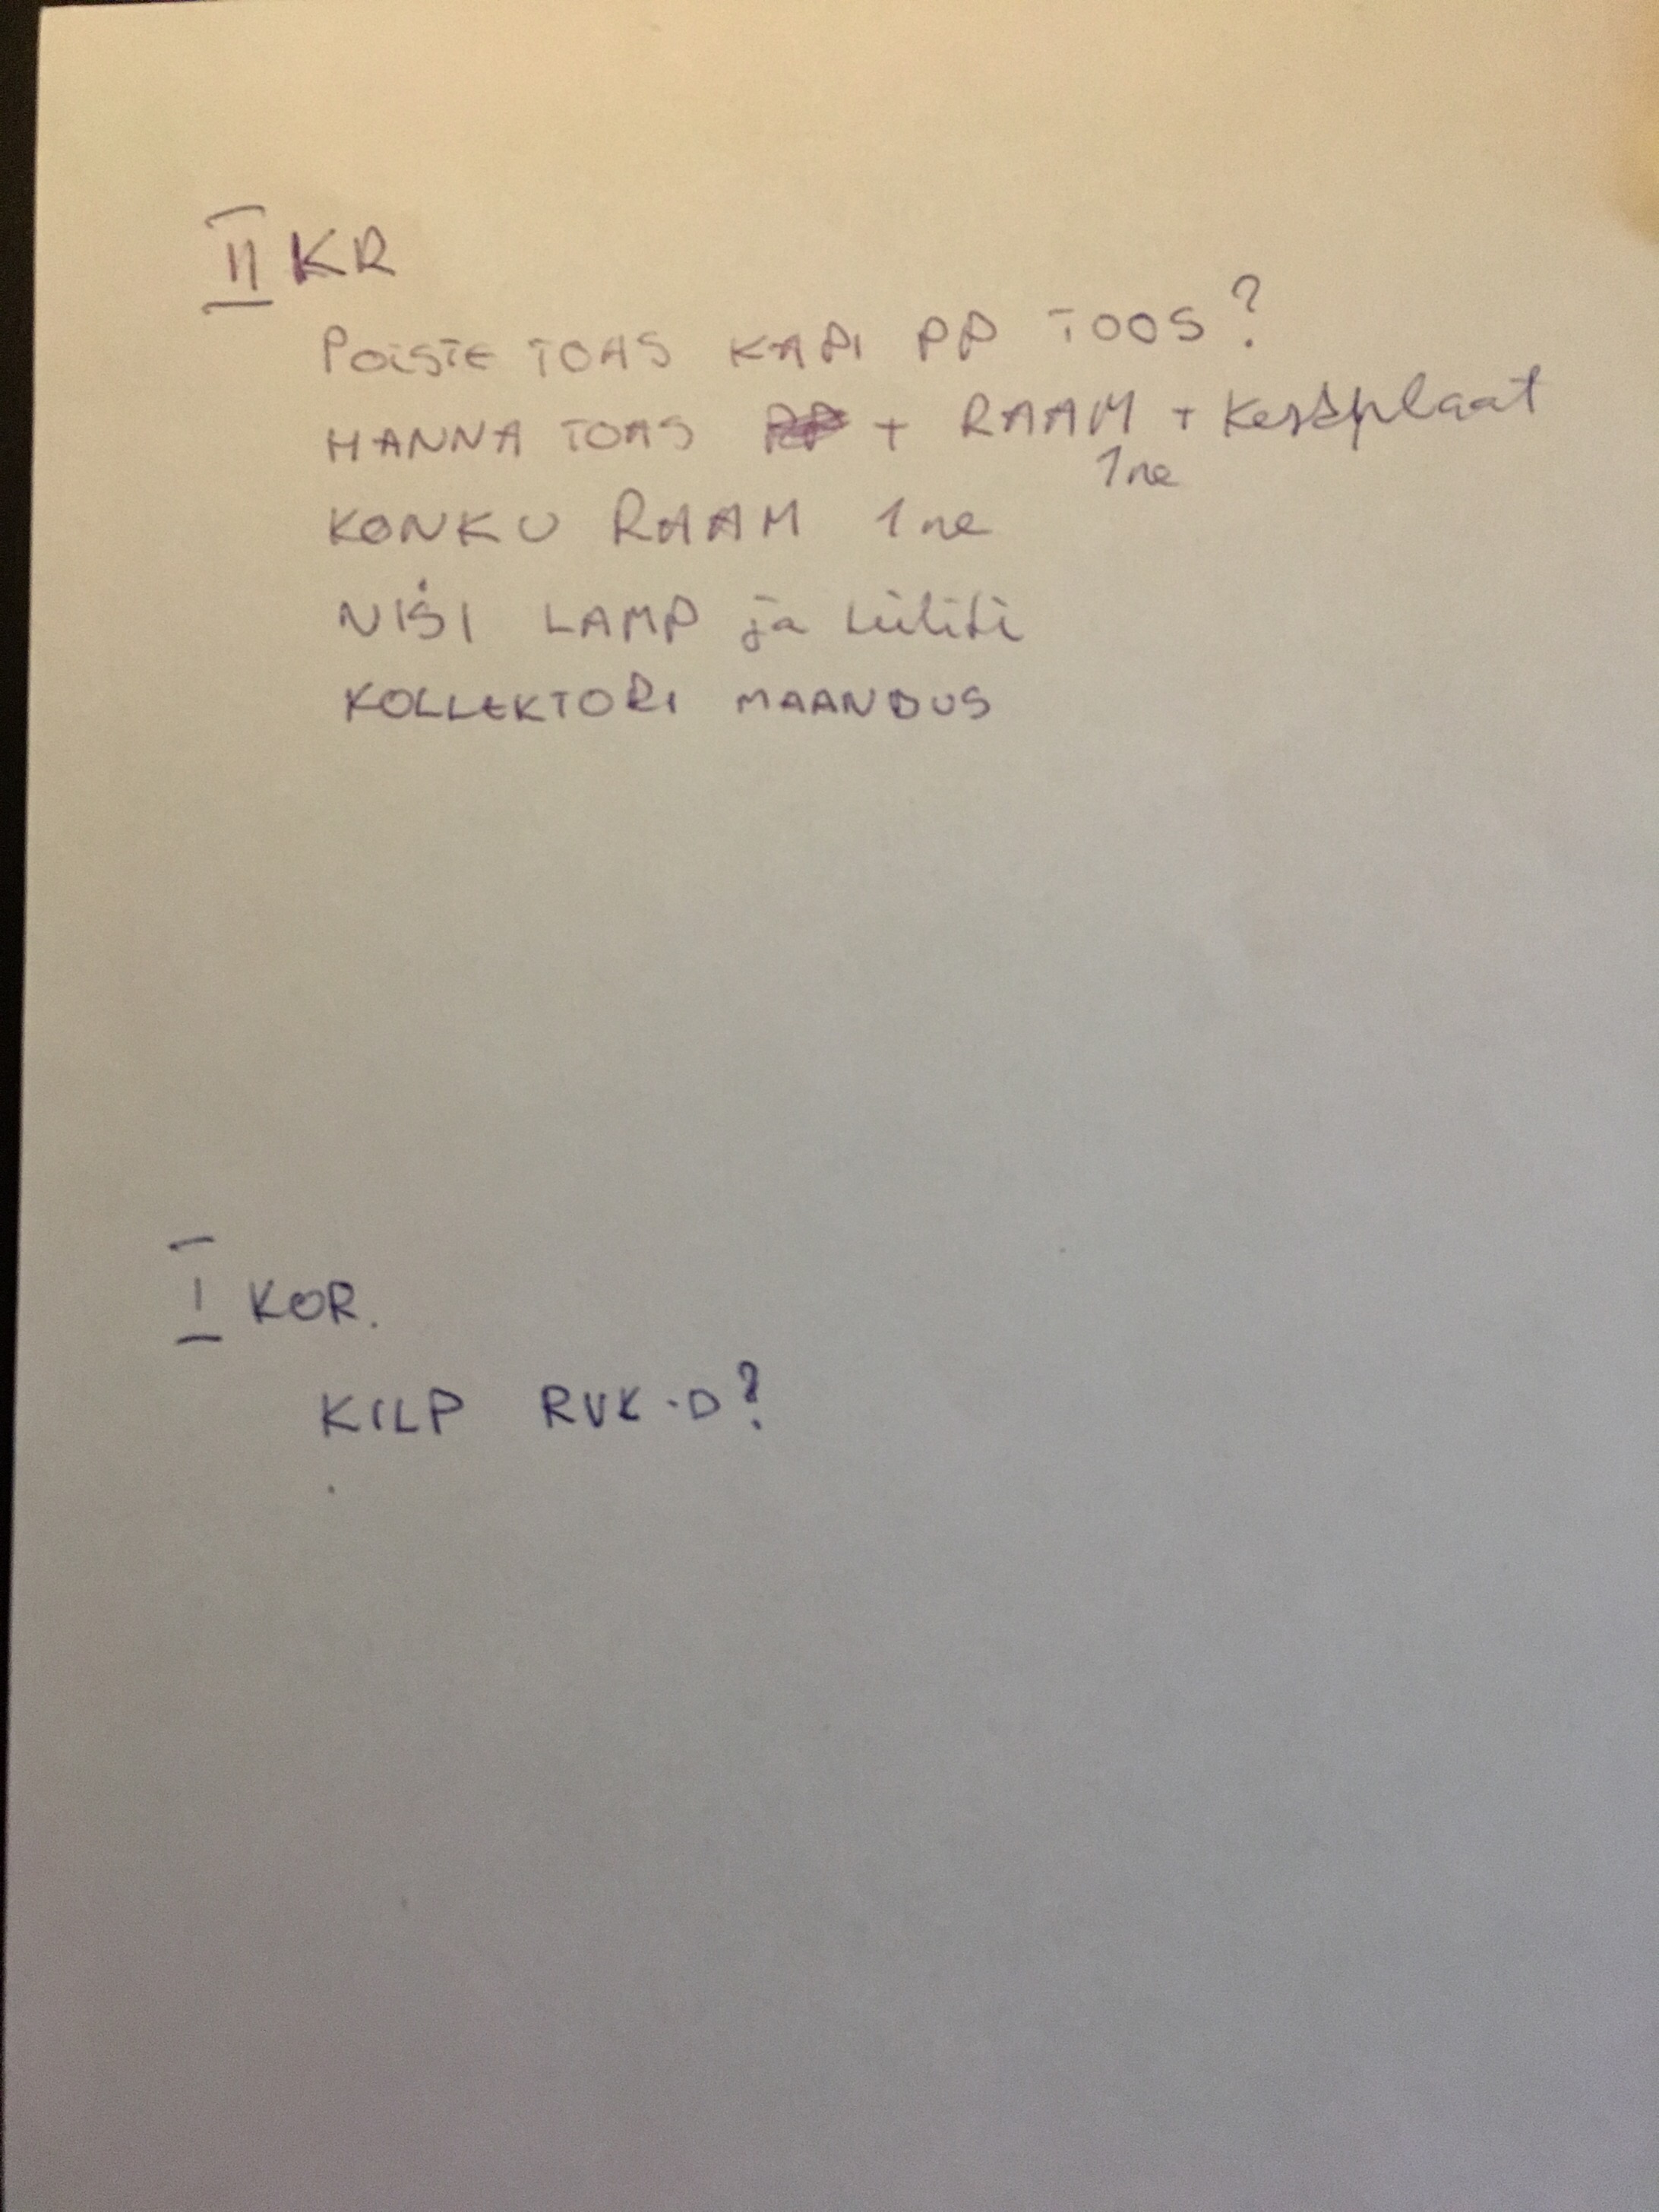 II KR
POISTE TOAS KAPI PP TOOS?
HANNA TOAS + RAAM + Keskplaat
1ne
KONKU RAAM 1ne
NIŠI LAMP ja lüliti
KOLLEKTORI MAANDUS
I KOR.
KILP RVK-D?